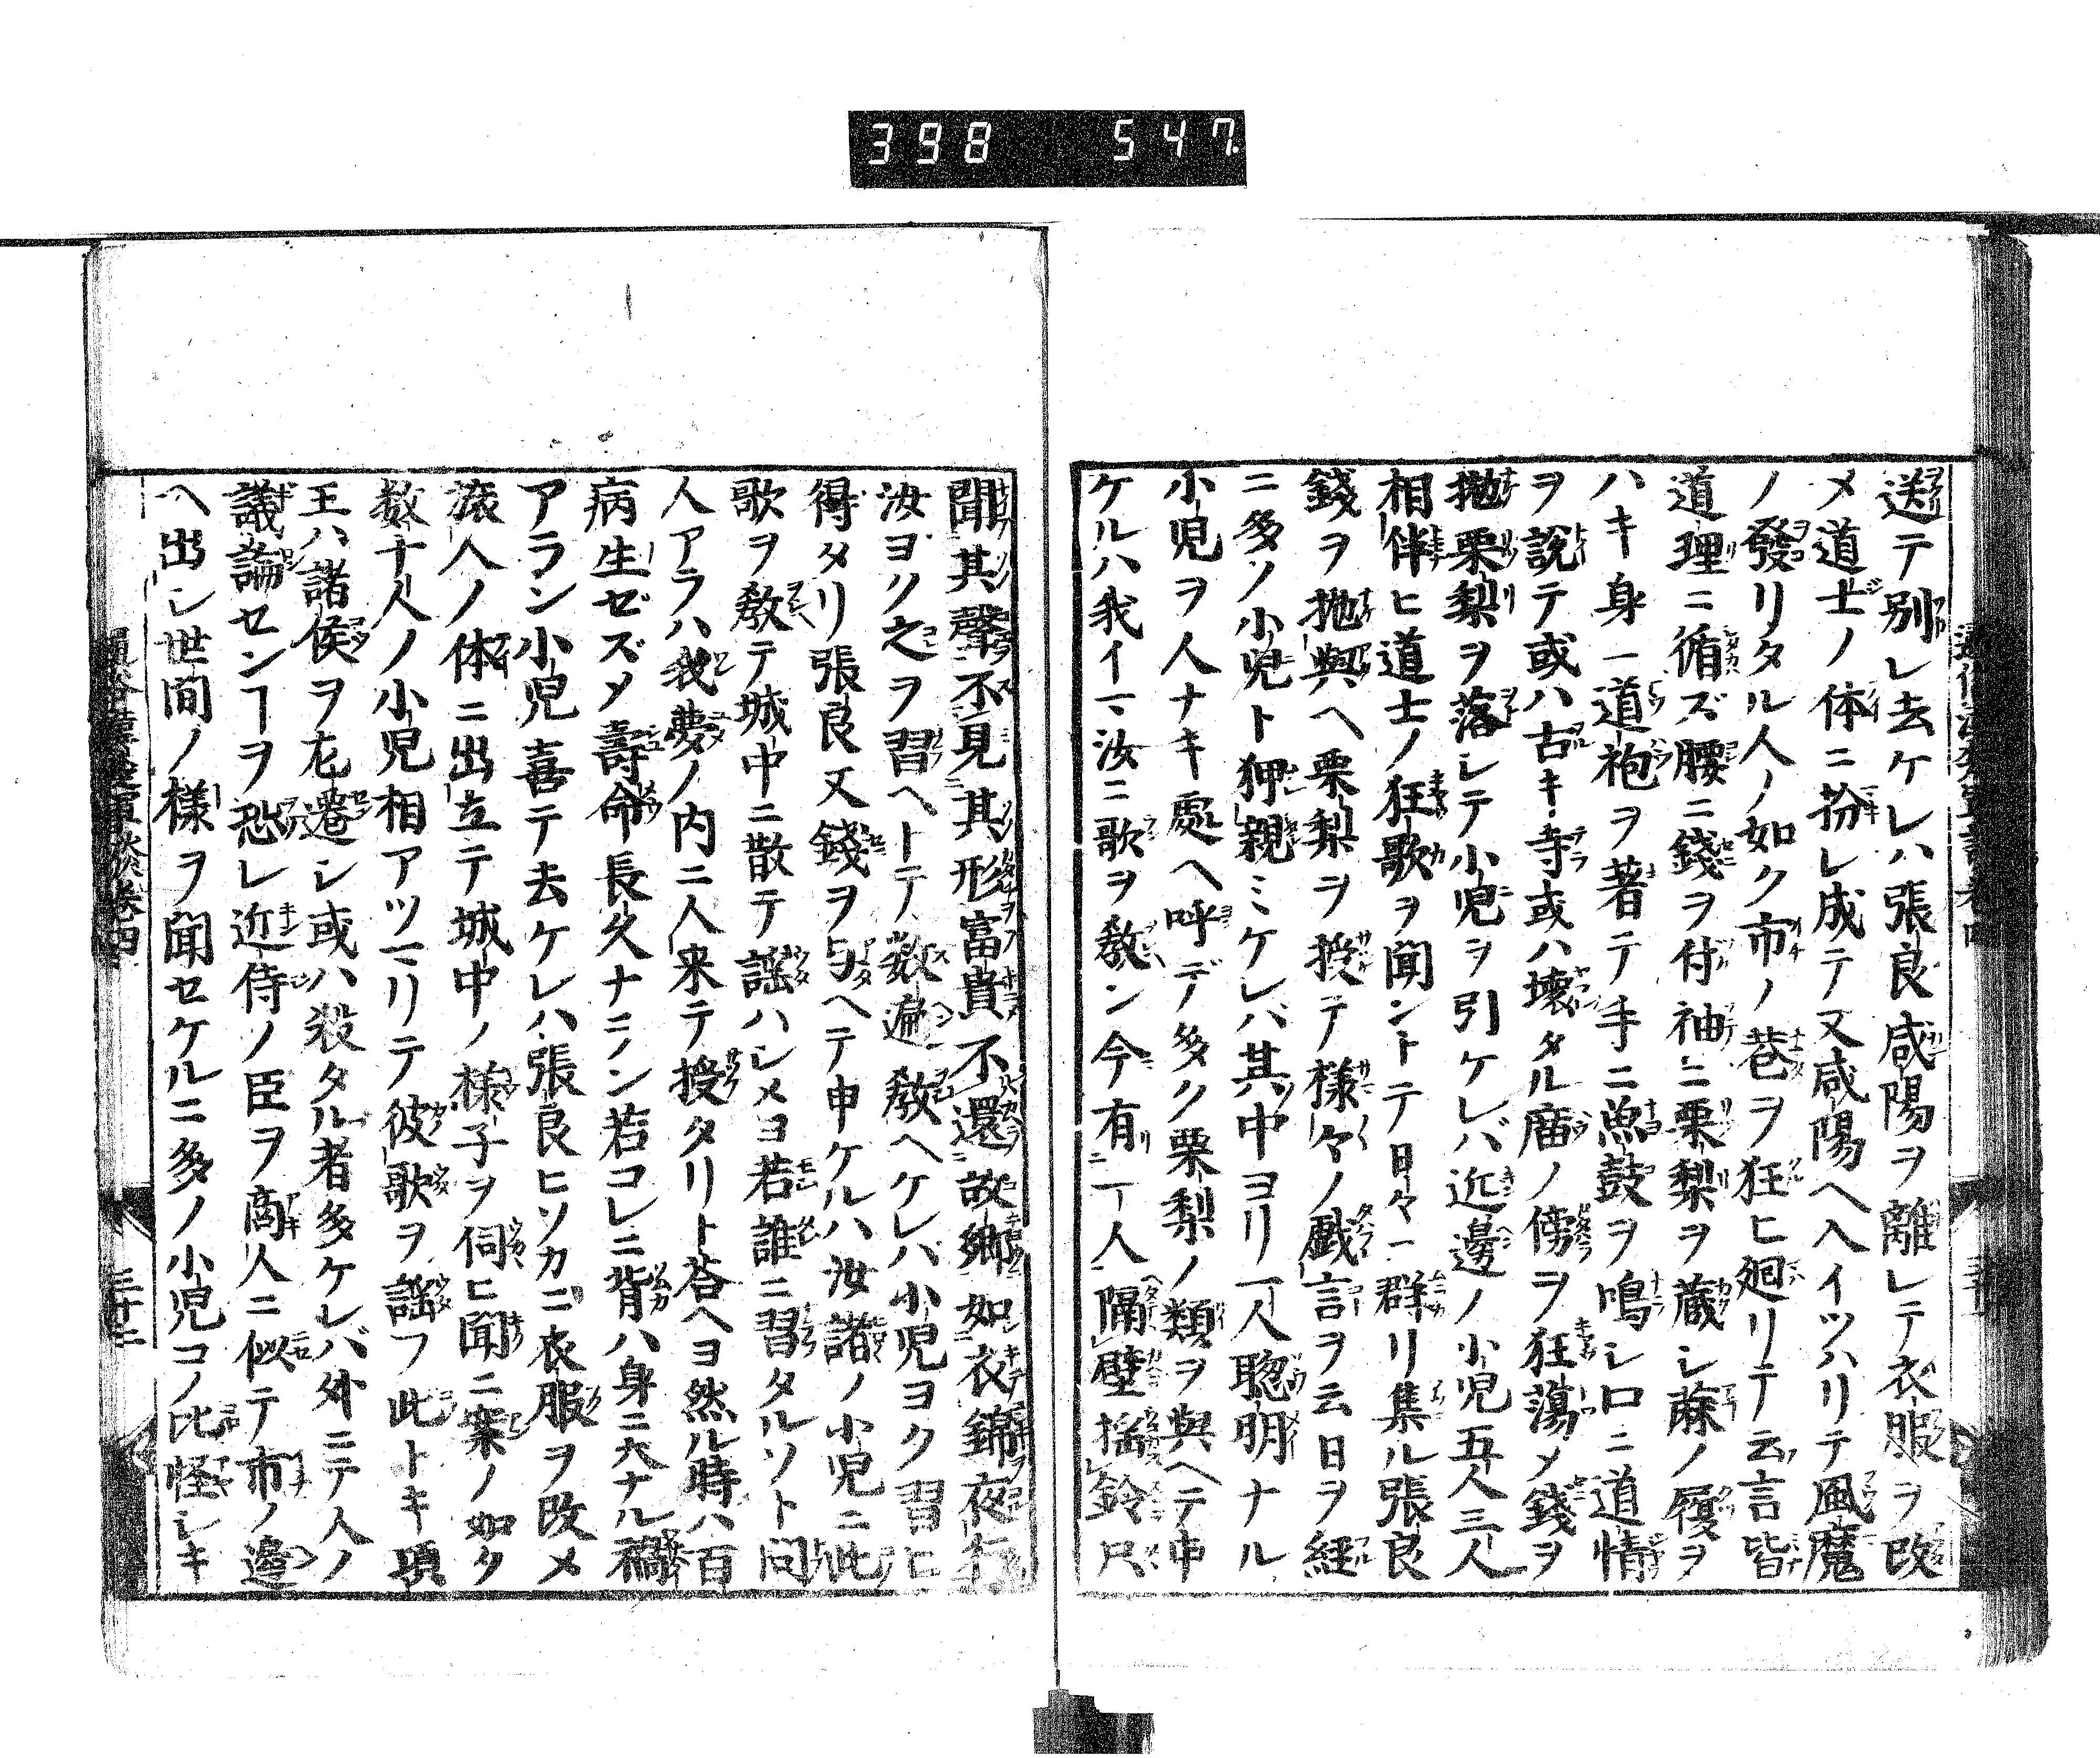 398 547
送テ別レ去ケレハ張良咸陽ヲ離レテ衣服ヲ改
メ道士ノ体ニ扮レ成テ又咸陽ヘ入イツハリテ風魔
ノ發リタル人ノ如ク市ノ巷ヲ狂ヒ廻リテ云言皆
道理ニ循ズ腰ニ錢ヲ付袖ニ栗梨ヲ蔵シ蔴ノ履ヲ
ハキ身一道袍ヲ著テ手ニ漁鼓ヲ鳴シ口ニ道情
ヲ説テ或ハ古キ寺或ハ壊タル庿ノ傍ヲ狂蕩メ錢ヲ
抛栗梨ヲ落レテ小児ヲ引ケレバ近邊ノ小児五人三人
相伴ヒ道士ノ狂歌ヲ聞ントテ日々一群リ集ル張良
錢ヲ抛與ヘ栗梨ヲ授テ様々ノ戯言ヲ云日ヲ經
ニ多ソ小児ト狎親ミケレバ其中ヨリ一人聰明ナル
小児ヲ人ナキ處ヘ呼デ多ク栗梨ノ類ヲ與ヘテ申
ケルハ我イマ汝ニ歌ヲ教ン今有一人隔壁揺鈴只
聞其聲不見其形富貴不還故郷如衣錦夜行
汝ヨク之ヲ習ヘトテ数遍教ヘケレバ小児ヨク習ヒ
得タリ張良又錢ヲ与ヘテ申ケルハ汝諸ノ小児ニ此
歌ヲ教テ城中ニ散テ謡ハシメヨ若誰ニ習タルソト問
人アラハ我夢ノ内ニ人来テ授タリト荅ヘヨ然ル時ハ百
病生ゼズメ壽命長久ナラン若コレニ背ハ身ニ大ナル禍
アラン小児喜テ去ケレハ張良ヒソカニ衣服ヲ改メ
旅人ノ体ニ出立テ城中ノ様子ヲ伺ヒ聞ニ案ノ如ク
数十人ノ小児相アツマリテ彼歌ヲ謡フ此トキ項
王ハ諸侯ヲ左遷シ或ハ殺タル者多ケレバ外ニテ人ノ
議論センヿヲ恐レ近侍ノ臣ヲ商人ニ似テ市ノ邊
ヘ出シ世間ノ様ヲ聞セケルニ多ノ小児コノ比怪シキ
三十二